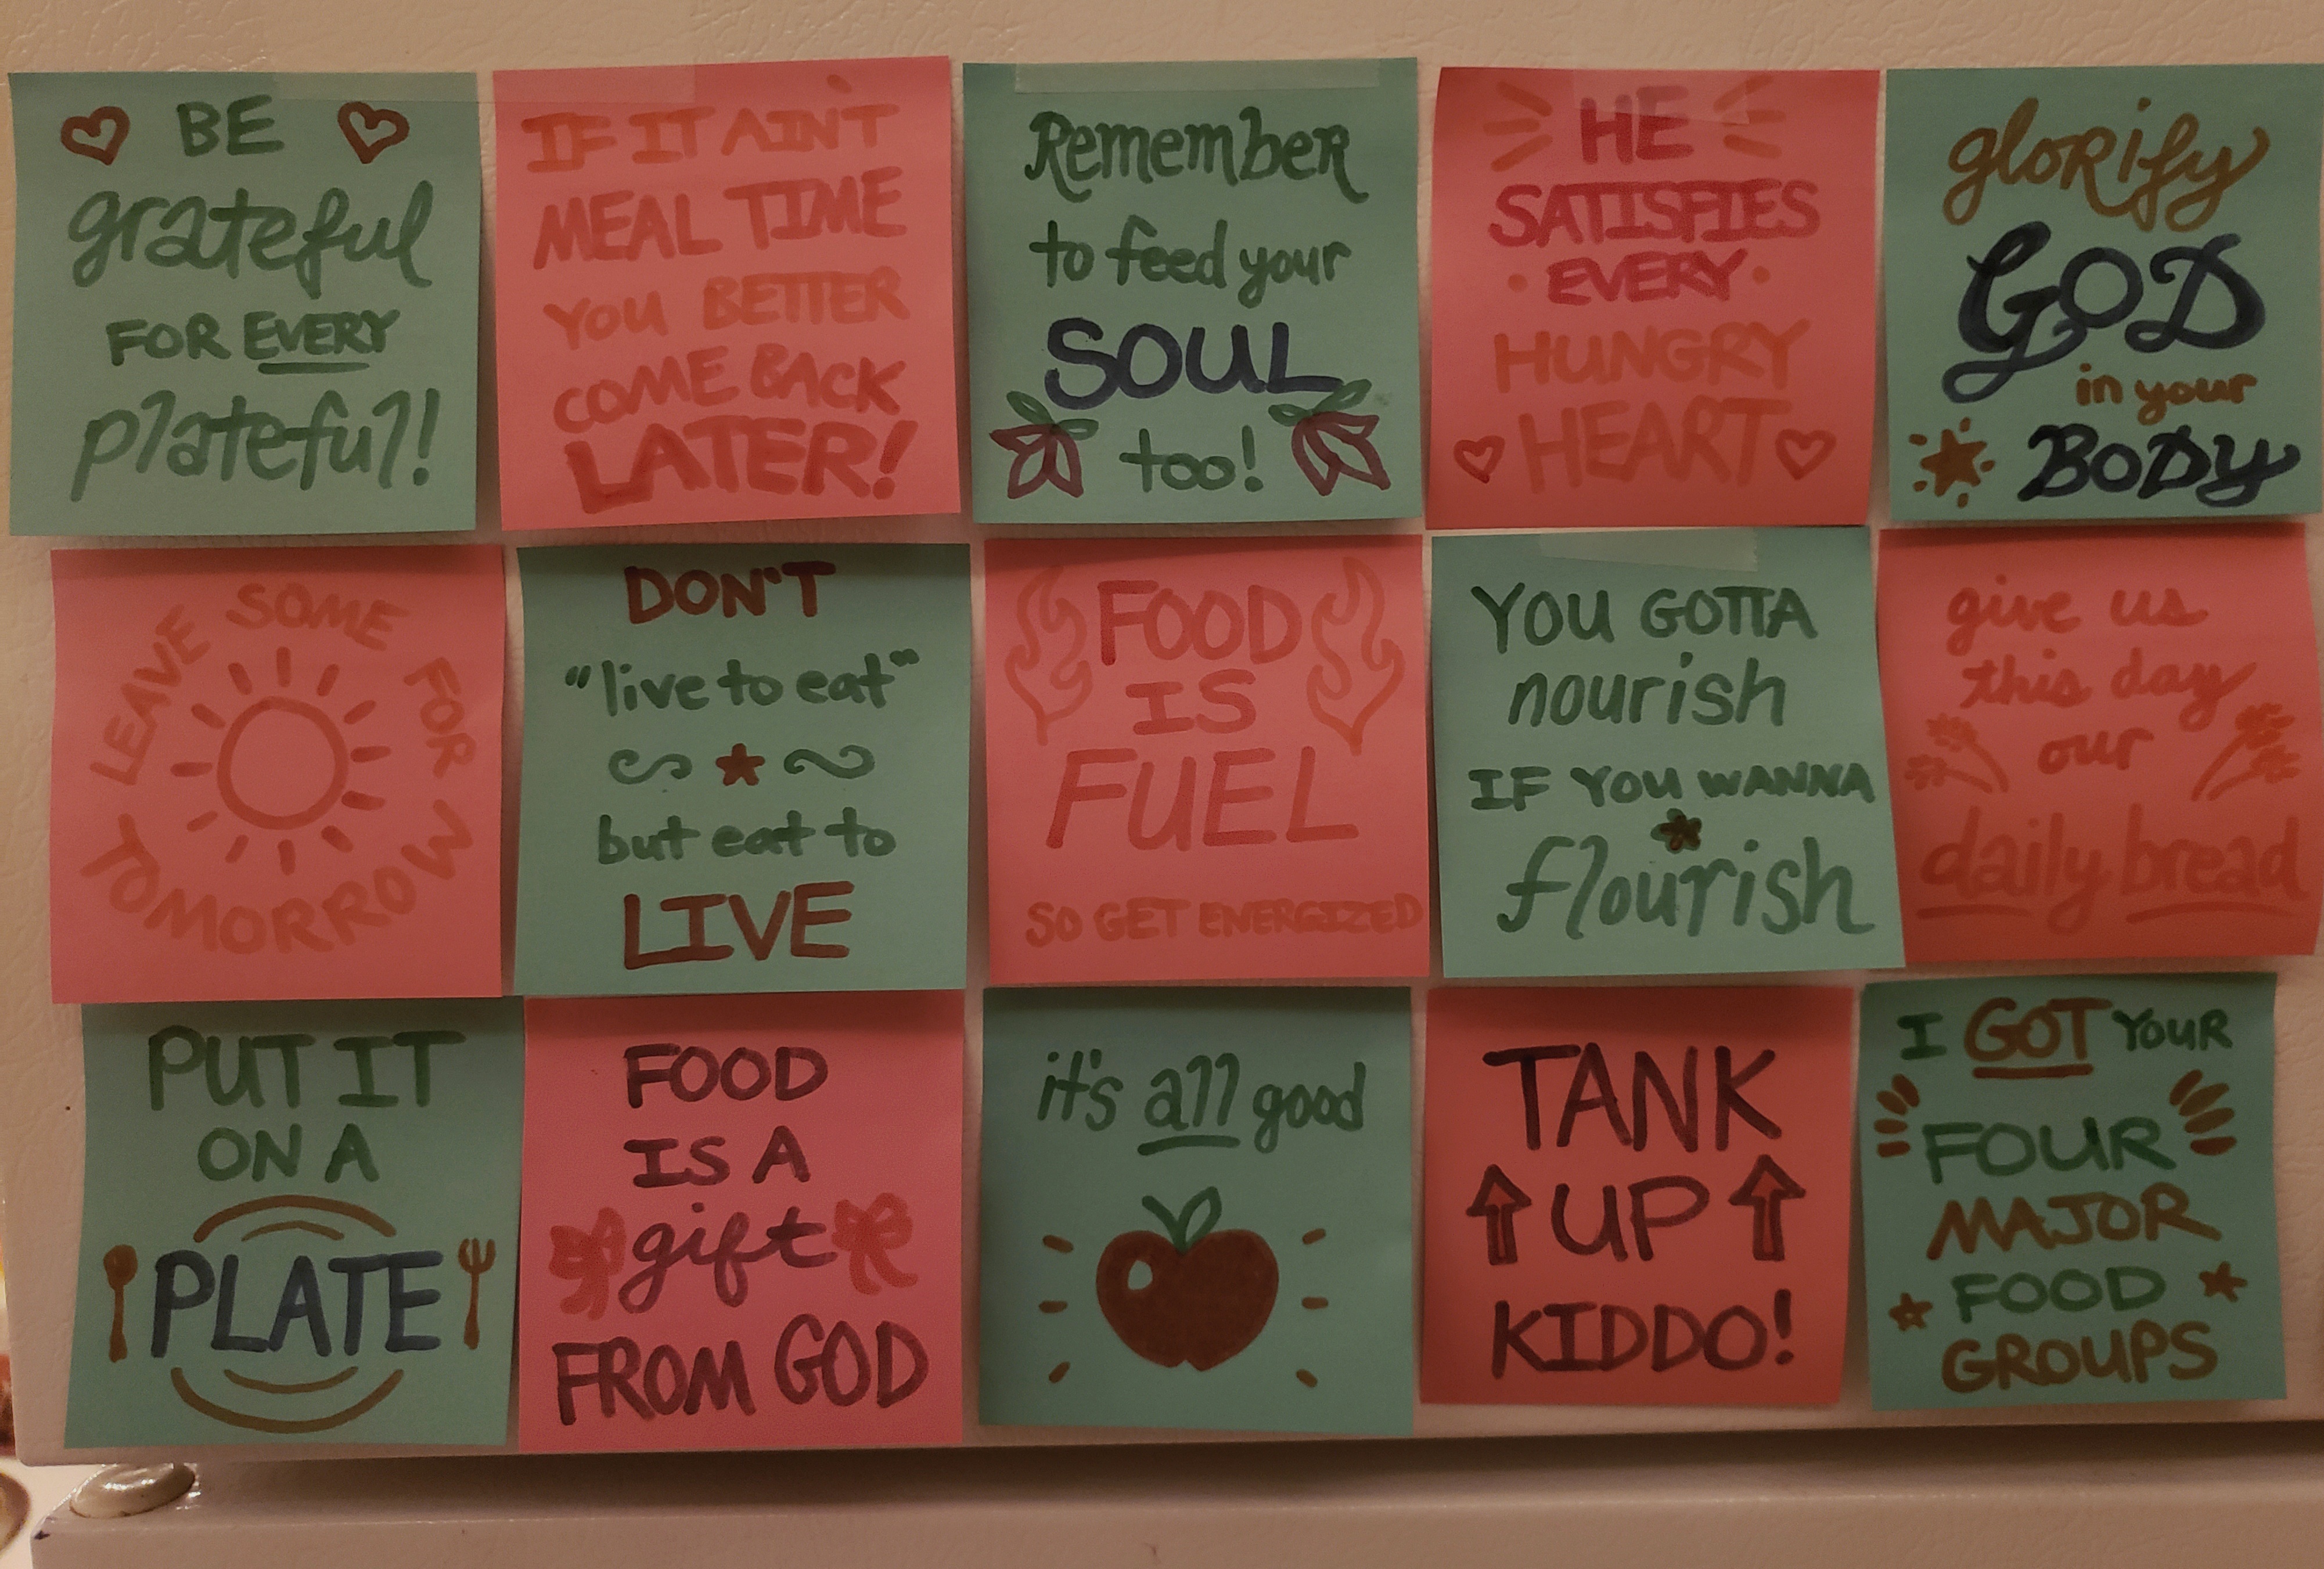 BE
grateful
FOR EVERY
plateful!
IF IT AIN'T
MEAL TIME
YOU BETTER
COME BACK
LATER!
Remember
to feed your
SOUL
too!
HE
SATISFIES
EVERY
HUNGRY
HEART
glorify
GOD
in your
BODY
LEAVE SOME FOR
TOMORROW
DON'T
"live to eat"
but eat to
LIVE
FOOD
IS
FUEL
SO GET ENERGIZED
YOU GOTTA
nourish
IF YOU WANNA
flourish
give us
this day
our
daily bread
PUT IT
ON A
PLATE
FOOD
IS A
gift
FROM GOD
it's all good
TANK
UP
KIDDO!
I GOT YOUR
FOUR
MAJOR
FOOD
GROUPS